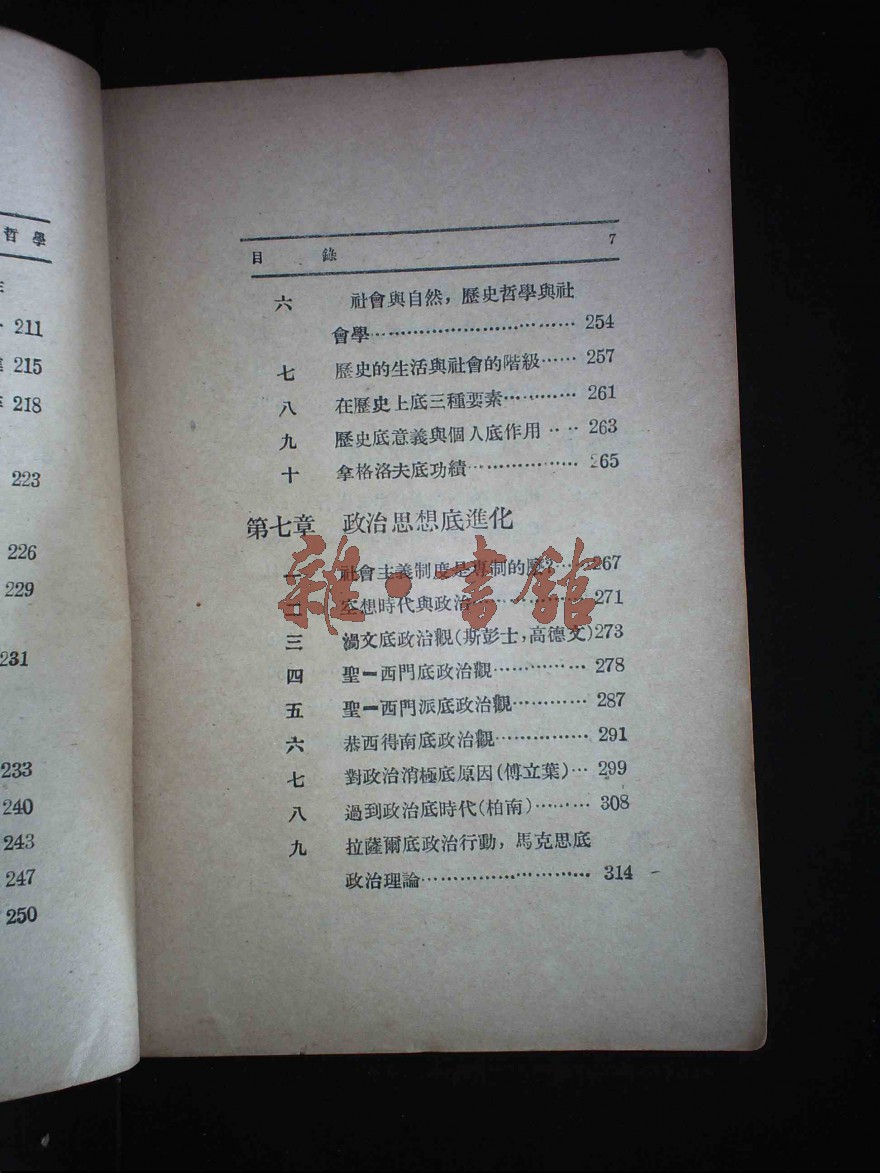 哲學
211
215
218
223
226
229
231
233
240
243
247
250
目 錄 7
六 社會與自然，歷史哲學與社
會學…………………………… 254
七 歷史的生活與社會的階級…… 257
八 在歷史上底三種要素………… 261
九 歷史底意義與個人底作用…… 263
十 拿格洛夫底功績……………… 265
第七章 政治思想底進化
一 社會主義制度是専制的麼？…… 267
二 空想時代與政治……………… 271
三 渦文底政治觀(斯彭士，高德文)273
四 聖一西門底政治觀…………… 278
五 聖一西門派底政治觀………… 287
六 恭西得南底政治觀…………… 291
七 對政治消極底原因(傅立葉)… 299
八 過到政治底時代(柏南)……… 308
九 拉薩爾底政治行動，馬克思底
政治理論……………………… 314
雜·書館